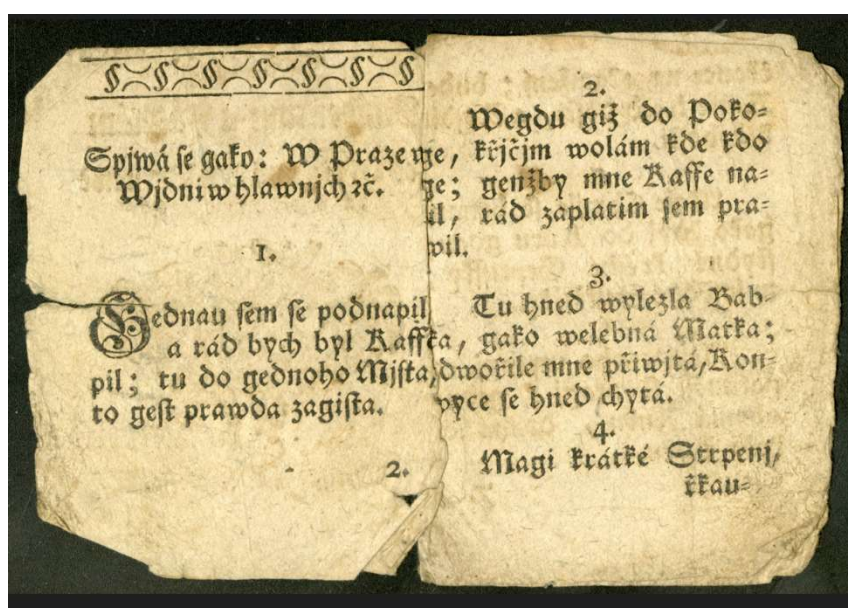 Spiwá se gako: W Praze we
Wjdni w hlawnjch ꝛč.
1.
Gednau sem se podnapil
a rád bych byl Kaffe
pil; tu do gednoho Mjsta,
to gest prawda zagista.
2.
2.
Wegdu giž do Poko-
ge, křičjm wolám kde kdo
ge; genžby mne Kaffe na-
il, rád zaplatim sem pra-
wil.
3.
Tu hned wylezla Bab-
ka, gako welebná Matka;
dwořile mne přiwjtá, Kon-
wyce se hned chytá.
4.
Magi krátké Strpenj,
řkau-